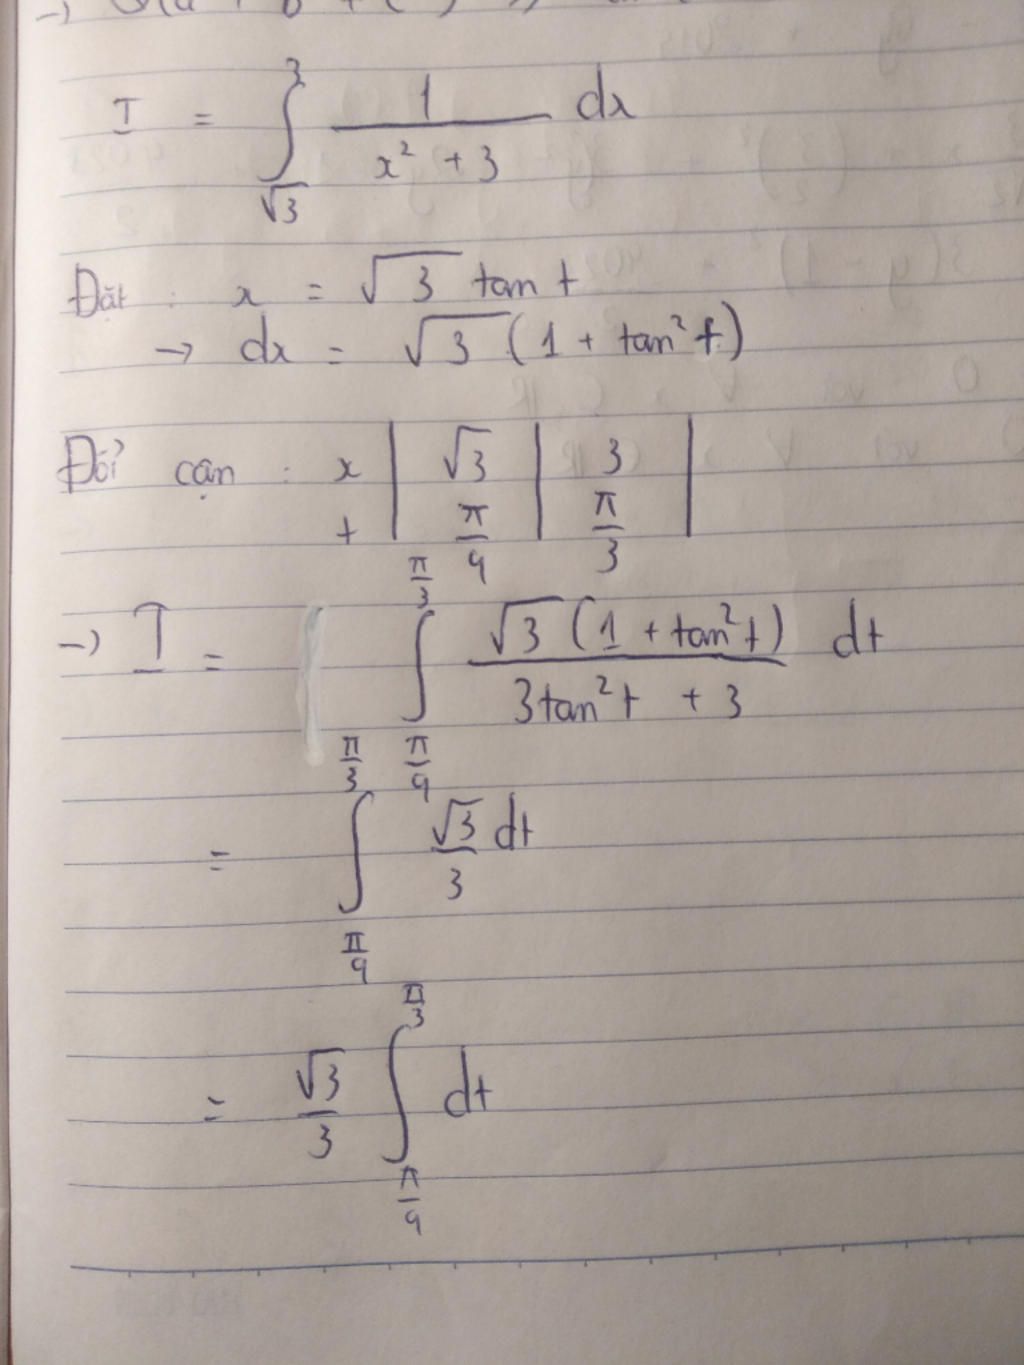 I = ∫_{√3}^{3} 1/(x² + 3) dx
Đặt : x = √3 tan t
→ dx = √3 (1 + tan² t)
Đổi cận : x | √3 | 3 |
t | π/4 | π/3 |
→ I = ∫_{π/4}^{π/3} √3 (1 + tan² t)/(3tan² t + 3) dt
= ∫_{π/4}^{π/3} √3/3 dt
= √3/3 ∫_{π/4}^{π/3} dt